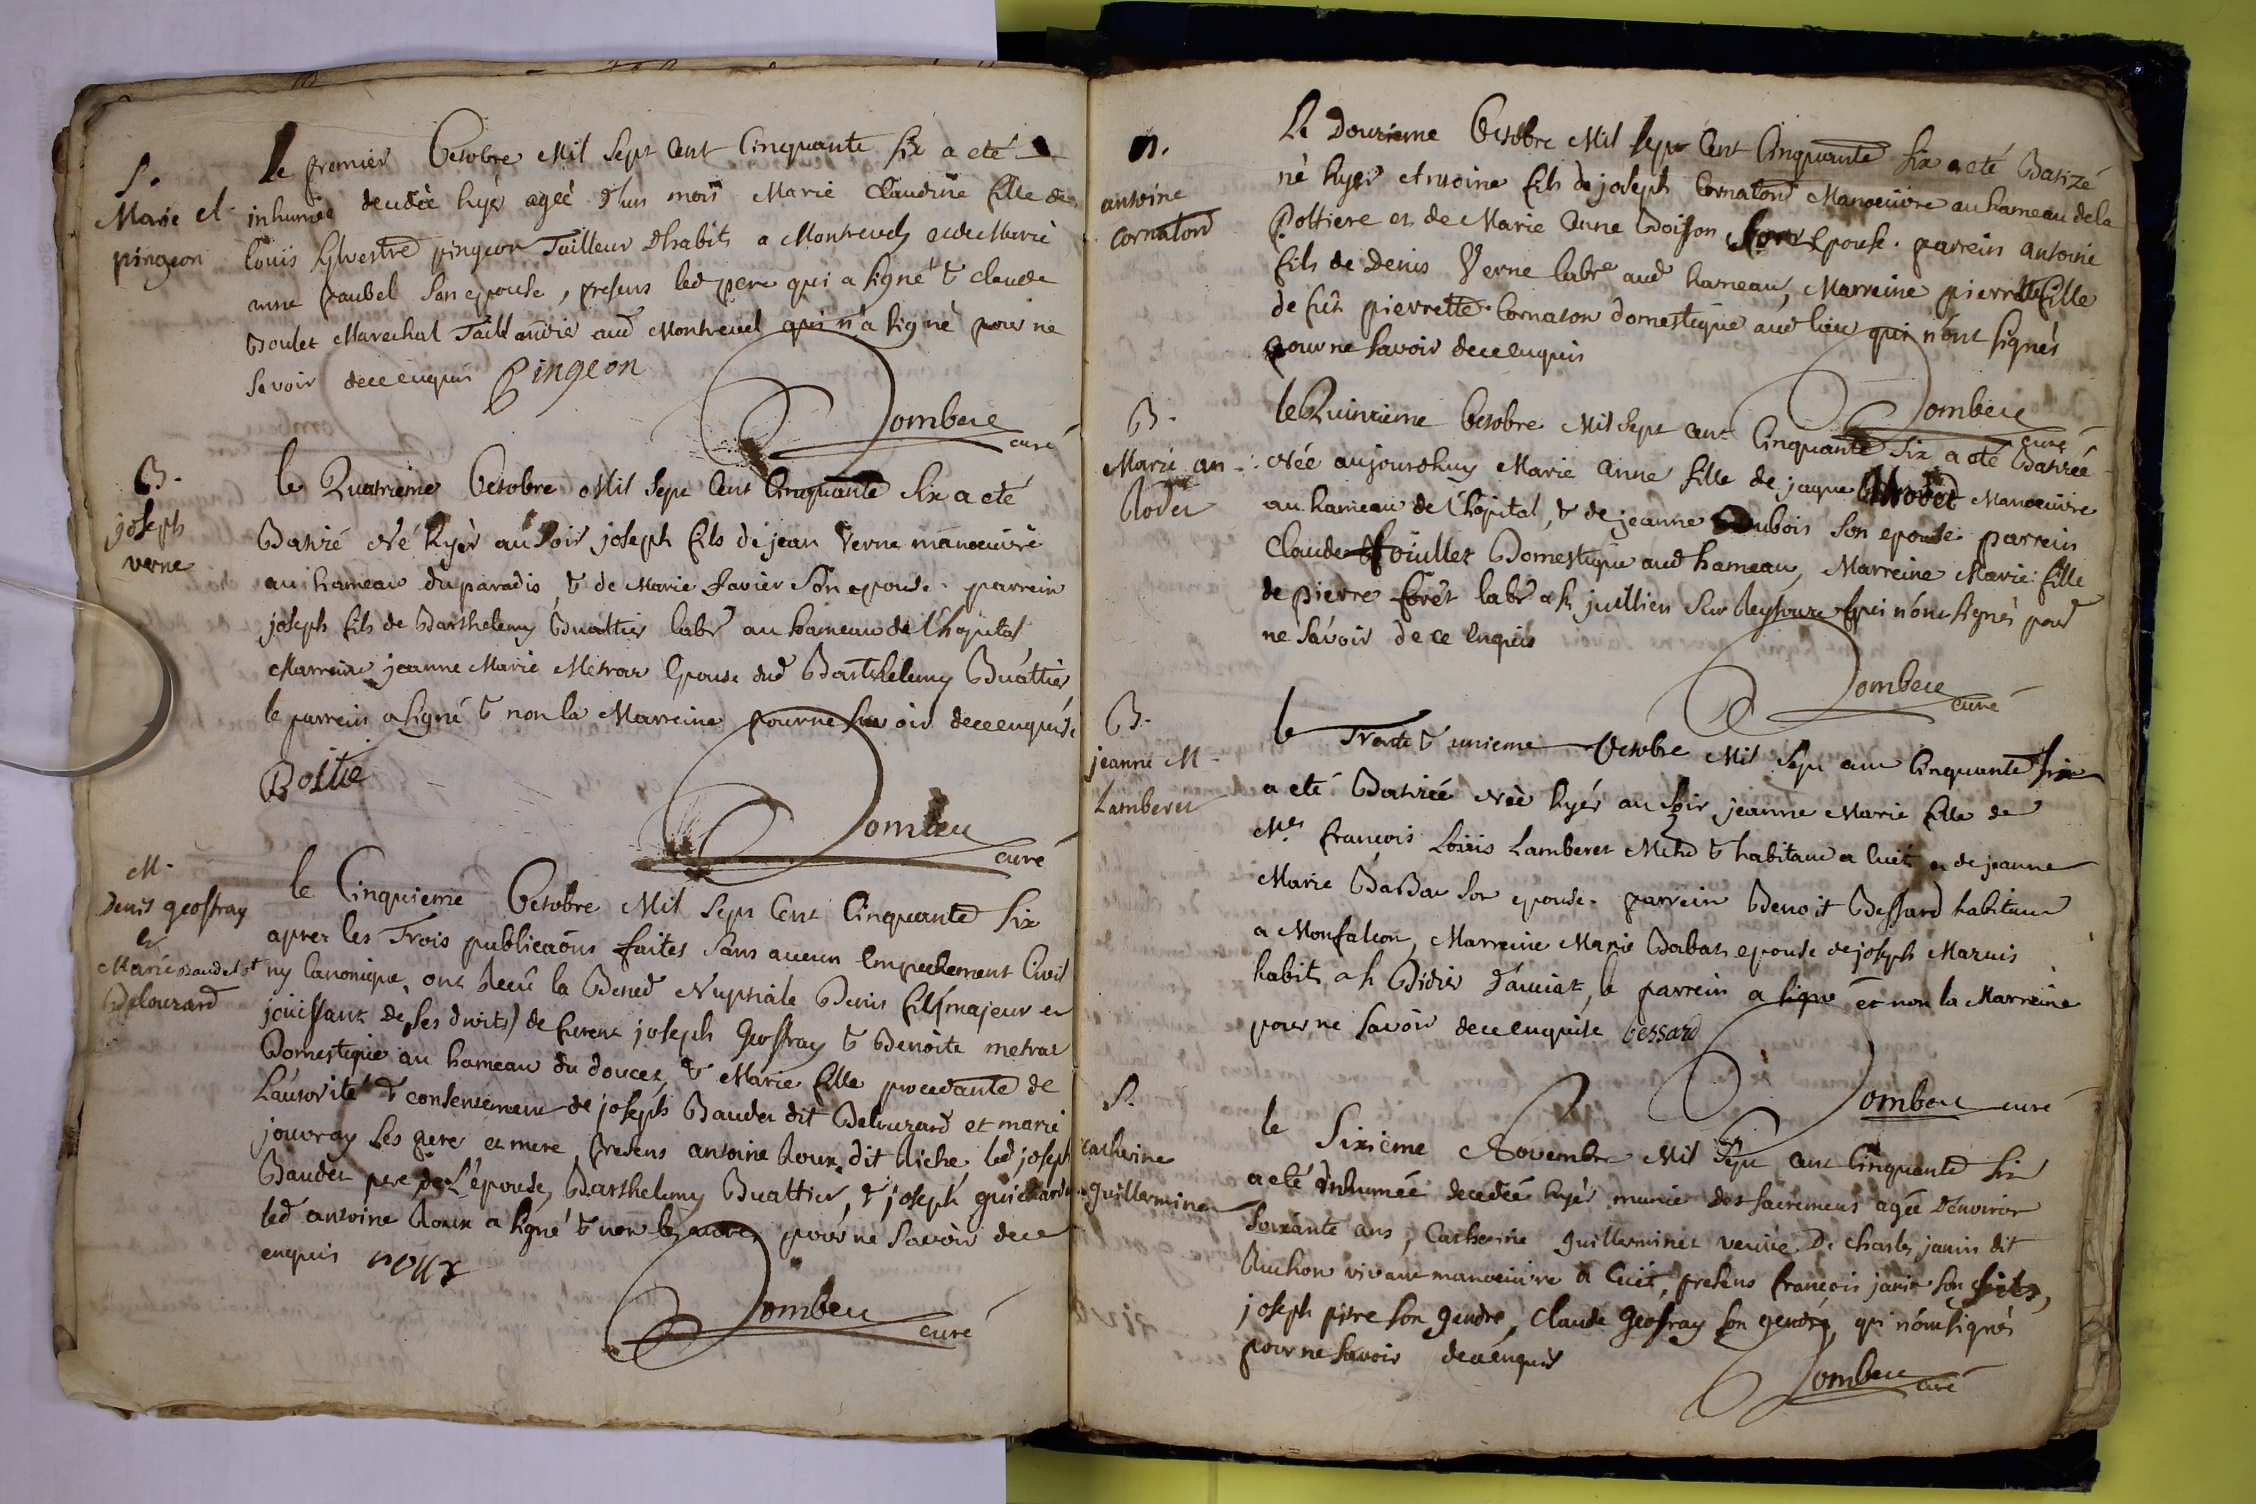 S.
Marie cl
pingeon
le premier Octobre Mil Sept Cent Cinquante six a eté
inhumée decedée hyer ageé d'un mois Marie Claudine fille de
Loüis Sylvestre pingeon Tailleur d'habits a Montrevel et de Marie
anne paubel son epouse, presens led pere qui a signé & claude
Boulet Marechal Taillandié aud Montrevel qui n'a signé pour ne
Savoir de ce enquis Pingeon
Dombeu curé
B.
joseph
verne
le Quatrieme Octobre Mil Sept Cent Cinquante Six a eté
Batizé né hyer au soir joseph fils de jean Verne manoeuvre
au hameau du paradis, & de Marie favier son epouse. parrein
joseph fils de Barthelemy Buattier labr au hameau de l'hopital
Marreine jeanne Marie Metras Epouse dud Barthelemy Buattier,
le parrein a signé & non la Marreine pour ne savoir de ce enquise
Dombeu
curé
M.
Denis geoffray
et
Marie Baudet dt
Delouzard
le Cinquieme Octobre Mil Sept Cent Cinquante Six
apres les Trois publicaõns faites sans aucun Empechement Civil
ny Canonique, ont Recû la Bened Nuptiale Denis fils majeur et
joüissant de ses droits de furent joseph Geoffray & Benoite metras
Domestique au hameau du doucet, & Marie fille procedante de
L'autorité & consentement de joseph Baudet dit Delouzard et marie
jouvray ses pere et mere presens antoine Roux dit Riche led joseph
Baudet pere de L'épouse, Barthelemy Buattier, & joseph guichard
led antoine Roux a signé & non les autres pour ne savoir de ce
enquis roux
Dombeu
curé
B.
antoine
Cornaton
Le Douzieme Octobre Mil Sept Cent Cinquante Six a eté Batizé
né hyer Antoine fils de joseph Cornaton Manoeuvre au hameau de la
Poltiere et de Marie Anne Boisson son Epouse. parrein antoine
fils de Denis Verne labr aud hameau, Marreine pierrette fille
de fût pierrette Cornaton domestique aud lieu qui n'ont signés
pour ne savoir de ce enquis
Dombeu
curé
B.
Marie an
Rodet
le Quinzieme Octobre Mil Sept Cent Cinquante Six a eté Batizée
Née aujourdhuy Marie Anne fille de jaque Rodet Manoeuvre
au hameau de l'hopital, & de jeanne Dubois son epouse parrein
Claude foüillet Domestique aud hameau, Marreine Marie fille
de pierre forêt labr a st juillien sur Reyssouze qui n'ont signés pour
ne savoir de ce Enquis
Dombeu
curé
B.
jeanne M
Lamberet
le Trente & unieme Octobre Mil Sept cent Cinquante Six
a eté Batizée Née hyér au soir jeanne Marie fille de
françois Loüis Lamberet Mchd & habitant a Cuêt et de jeanne
Marie Babat son epouse. parrein Benoit Bessard habitant
a Monfalcon, Marreine Marie Babat epouse de joseph Maruis
habit a st Didier d'aussiat, le parrein a signé et non la Marreine
pour ne savoir de ce enquise bessard
Dombeu curé
S.
Catherine
guillerminet
le Sixieme Novembre Mil Sept Cent Cinquante Six
a eté Inhumée decedée hyér munie des sacremens agée d'environ
soixante ans, Catherine guillerminet veuve De Charles janin dit
Ruchon vivant manoeuvre a Cuêt, presens françois janin son fils,
joseph pitre son gendre, Claude Geoffray son gendre, qui n'ont signés
pour ne savoir de ce enquis
Dombeu curé